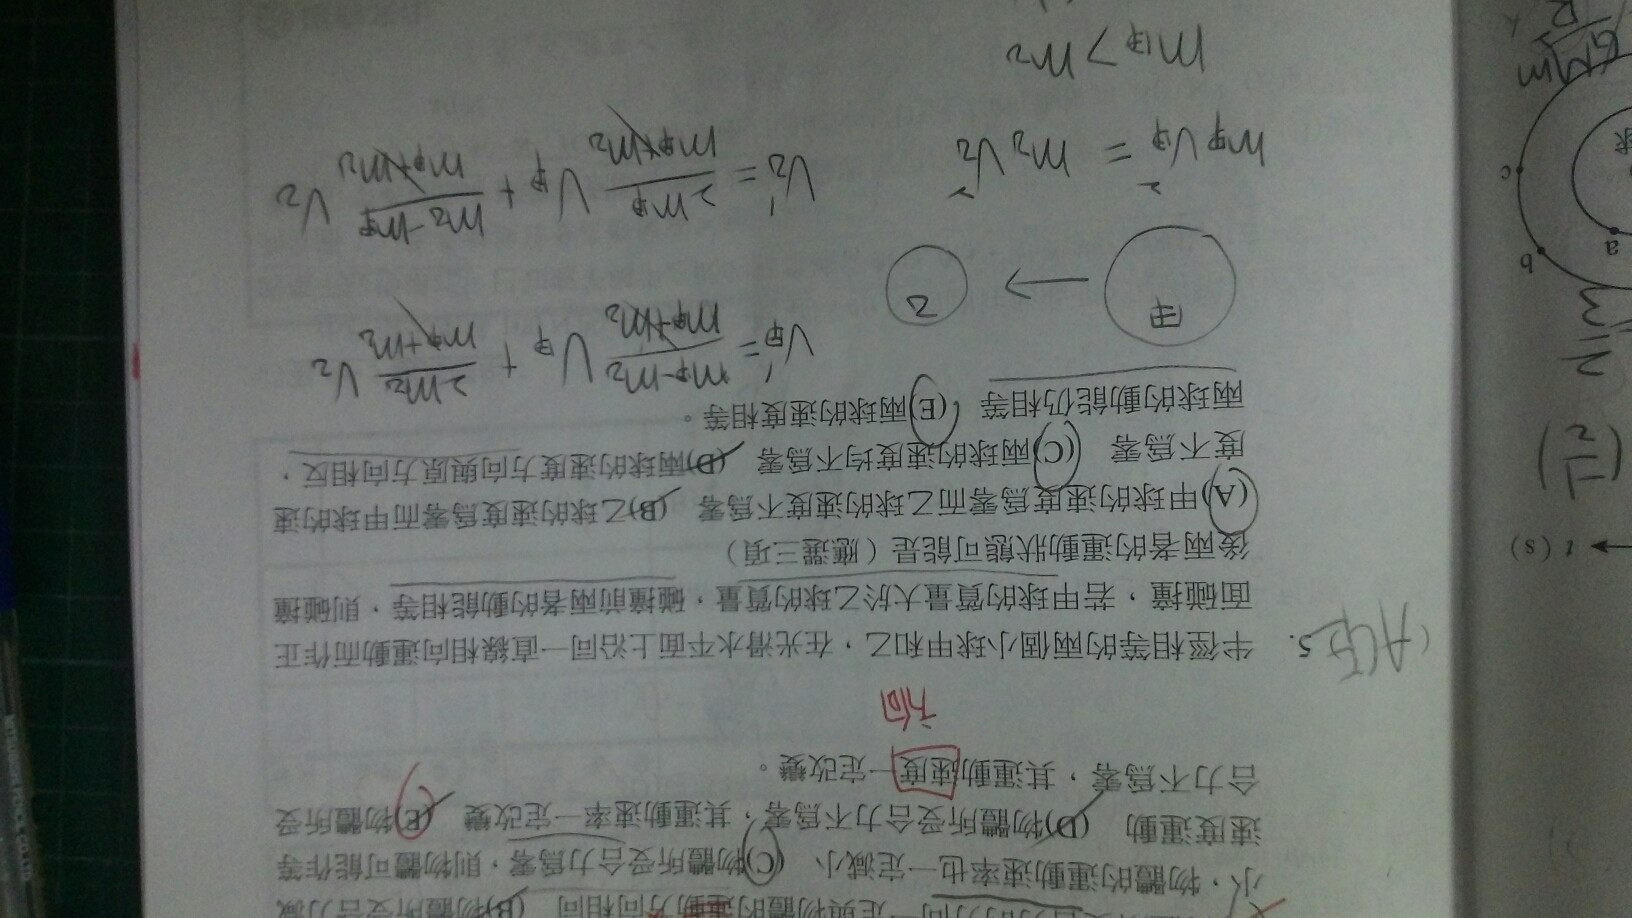 小，物體的運動速率也一定減小 (C)物體所受合力為零，則物體可能作等
速度運動 (D)物體所受合力不為零，其運動速率一定改變 (E)物體所受
合力不為零，其運動速度一定改變。
方向
(ACE) 5. 半徑相等的兩個小球甲和乙，在光滑水平面上沿同一直線相向運動而作正
面碰撞，若甲球的質量大於乙球的質量，碰撞前兩者的動能相等，則碰撞
後兩者的運動狀態可能是（應選三項）
(A)甲球的速度為零而乙球的速度不為零 (B)乙球的速度為零而甲球的速
度不為零 (C)兩球的速度均不為零 (D)兩球的速度方向與原方向相反，
兩球的動能仍相等 (E)兩球的速度相等。
甲 → 乙
V甲' = (m甲-m乙)/(m甲+m乙) V甲 + 2m乙/(m甲+m乙) V乙
m甲V甲² = m乙V乙²
V乙' = 2m甲/(m甲+m乙) V甲 + (m乙-m甲)/(m甲+m乙) V乙
m甲 > m乙
t (s)
a
b
c
球